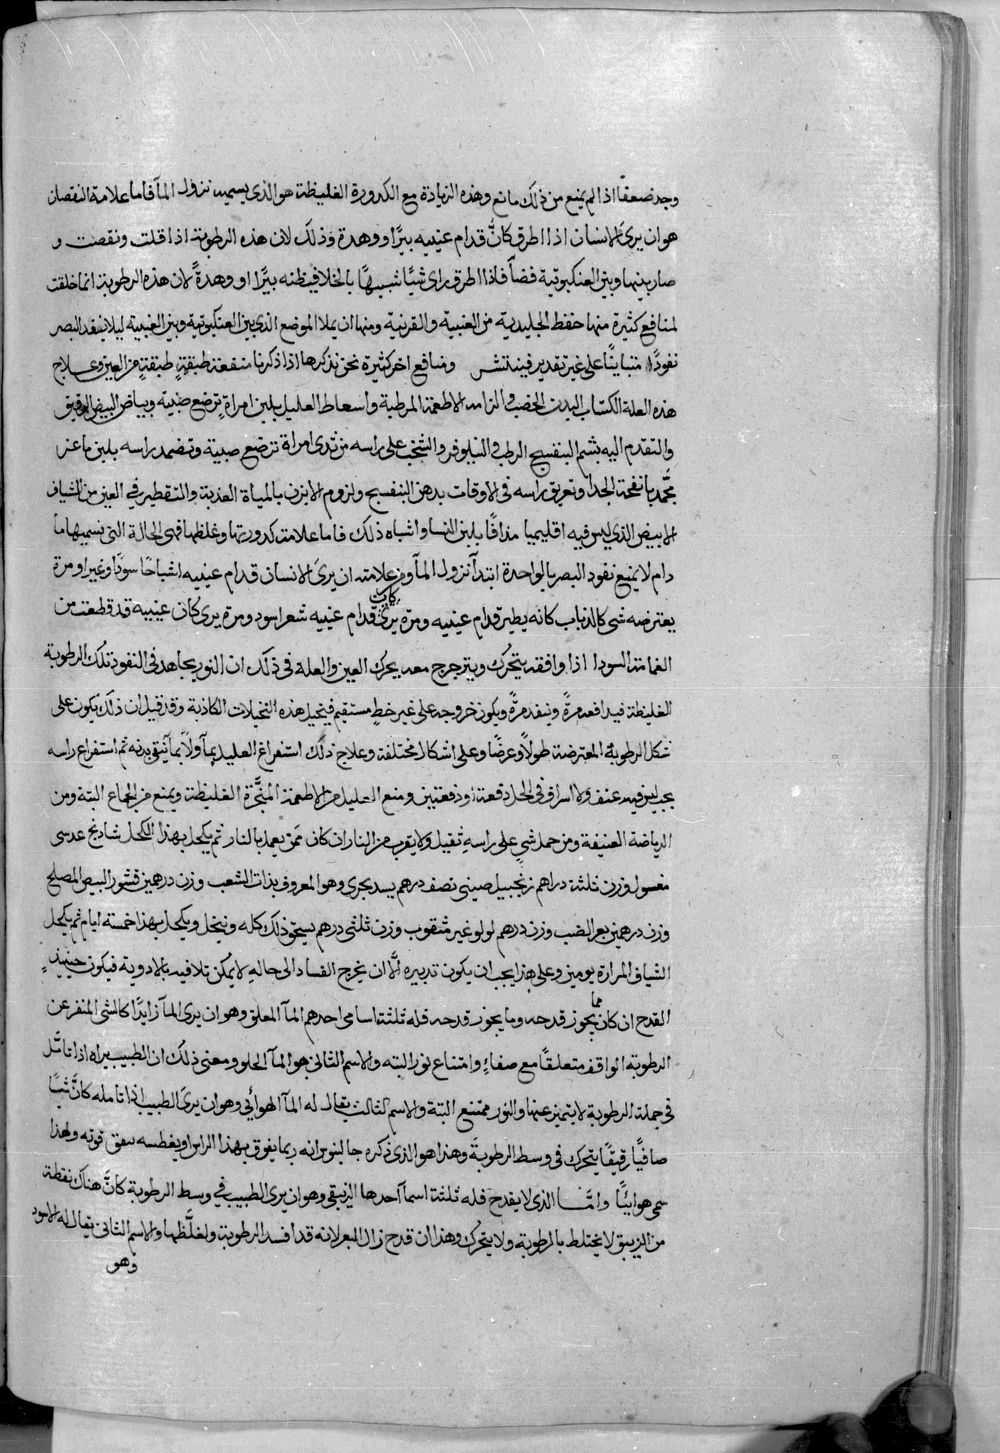 وجد ضعفا اذا لم يمنع من ذلك مانع وهذه الزيادة مع الكدورة الغليظة هو الذى يسميه نزول المآ فاما علامة النقصان
هو ان يرى الانسان اذا اطرق كانّ قدام عينيه بيرًا او وهدة وذلك لان هذه الرطوبة اذا قلت ونقصت و
صار بينها وبين العنكبوتية فضآ فاذا اطرق راى شيًا شبيهًا بالخلا فيظنه بيرًا او وهدةً لان هذه الرطوبة انما خلقت
لمنافع كثيرة منها حفظ الجليدية من العنبية والقرنية ومنها ان يملا الموضع الذى بين العنكبوتية وبين العنبية ليلا ينفد البصر
نفودًا متباينًا على غير تقدير فينتشر ومنافع اخر كثيرة نحن نذكرها اذا ذكرنا منفعة طبقةٍ طبقةٍ من العين وعلاج
هذه العلة اكتساب البدن الخصب والزامه الاطعمة المرطبة واسعاط العليل بلبن امراةٍ ترضع صبية وبياض البيض الرقيق
والتقدم اليه بشم البنفسج الرطب والنيلوفر والشخب على راسه من ثدى امراة ترضع صبية وتضمد راسه بلبن ماعز
مجّمد بانفحة الجدا وتعريق راسه فى الاوقات بدهن البنفسج ولزوم الابزن بالمياة العذبة والتقطير فى العين من الشياف
الابيض الذى ليس فيه اقليميا مدافًا بلبن النسا واشباه ذلك فاما علامة كدورتها وغلظها فهى الحالة التى نسميها ما
دام لا يمنع نفود البصر بالواحدة ابتدآ نزول المآ ومن علامته ان يرى الانسان قدام عينيه اشباحًا سودًا وغير او مرة
يعترضه شى كالذباب كانه يطير قدام عينيه ومرة يرى كان قدام عينيه شعر اسود ومرة يرى كان عينيه قد قطعت من
الغمامة السودا اذا وافقه يتحرك ويترجرج معه يحرك العين والعلة فى ذلك ان النور يجاهد فى النفوذ تلك الرطوبة
الغليظة فيدافعه مرةً وينفد مرةً ويكون خروجه على غير خط مستقيم فيخيل هذه التخيلات الكاذبة وقد قيل ان ذلك يكون على
شكل الرطوبة المعترضة طولًا وعرضًا وعلى اشكال مختلفة وعلاج ذلك استفراغ العليل بمآ اولًا بما ينقى بدنه ثم استفراع راسه
بحب ليس فيه عنف ولا اسراف فى الحل دفعة او دفعتين ومنع العليل من الاطعمة المبخّرة الغليظة ويمنع من الجماع البتة ومن
الرياضة العنيفة ومن حمل شي على راسهِ ثقيل ولا يقرب من النار ان كان ممن يعمد بالنار ثم يكحل بهذا الكحل شادنج عدسى
مغسول وزن ثلثة دراهم زنجبيل صينى نصف درهم بسد بحرى وهو المعروف بذات الشعب وزن درهمين قشور البيض المصلح
وزن درهمين بعر الضب وزن درهم لولو غير مثقوب وزن ثلثى درهم يسحق ذلك كله وينخل ويكحل بهذا خمسة ايام ثم يكحل
الشياف المرارة يومين وعلى هذا يجب ان يكون تدبيره الّا ان يخرج الفساد الى حالهِ لا يمكن تلافيه بالادوية فيكون حينيذٍ
القدح ان كان مما يجوز قدحه وما يجوز قدحه فله ثلثة اسامى احدهم المآ المعلق وهو ان يرى المآ زايدًا كالشى المنفر عن
الرطوبة الواقفة متعلقًا مع صفاءٍ وامتناع نور البته والاسم الثانى هو المآ الحلو ومعنى ذلك ان الطبيب يراه اذا تامّل
فى جملة الرطوبة لا يتميز عنها والنور ممتنع البتة والاسم الثالث يقال له المآ الهوائي وهو ان يرى الطبيب اذا تامله كانّ شيًا
صافيًا رقيقًا يتحرك فى وسط الرطوبة وهذا هو الذى ذكره جالينوس انه ربما يفوق بهذا الراس او يغطسه سفق قوته ولهذا
سمى هوائيًا وامّا الذى لا يقدح فله ثلثة اسمآ احدها الزيبقى وهو ان يرى الطبيب فى وسط الرطوبة كانّ هناك نقطة
من الزيبق لا يختلط بالرطوبة ولا يتحرك وهذا ان قدح زال البعر لانه قد افسد الرطوبة ولغلّظها والاسم الثانى يقال له الاسود
وهو